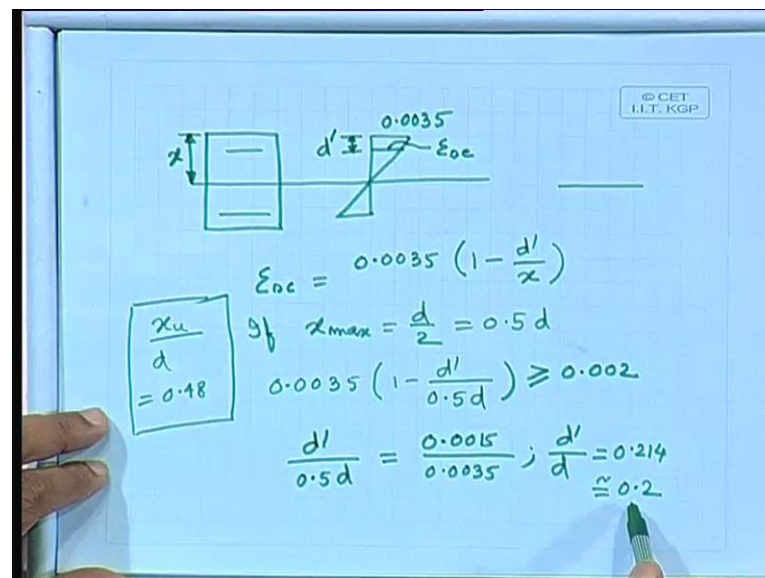 © CET
I.I.T. KGP
0.0035
x
d'
εsc
εsc = 0.0035 (1 - d'/x)
xu/d = 0.48
If xmax = d/2 = 0.5d
0.0035 (1 - d'/0.5d) ≥ 0.002
d'/0.5d = 0.0015/0.0035 ; d'/d = 0.214
≅ 0.2